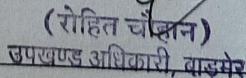 (रोहित चौहान)
उपखण्ड अधिकारी, बाडमेर